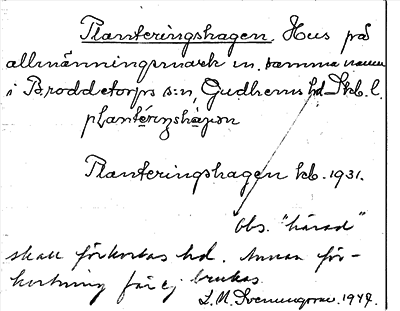 Planteringshagen. Hus på
allmänningsmark m. samma namn
i Broddetorps s:n, Gudhems hd. Skb. l.
plantéringshagən
Planteringshagen kb. 1931.
Obs. "härad"
skall förkortas hd. Annan för-
kortning får ej brukas